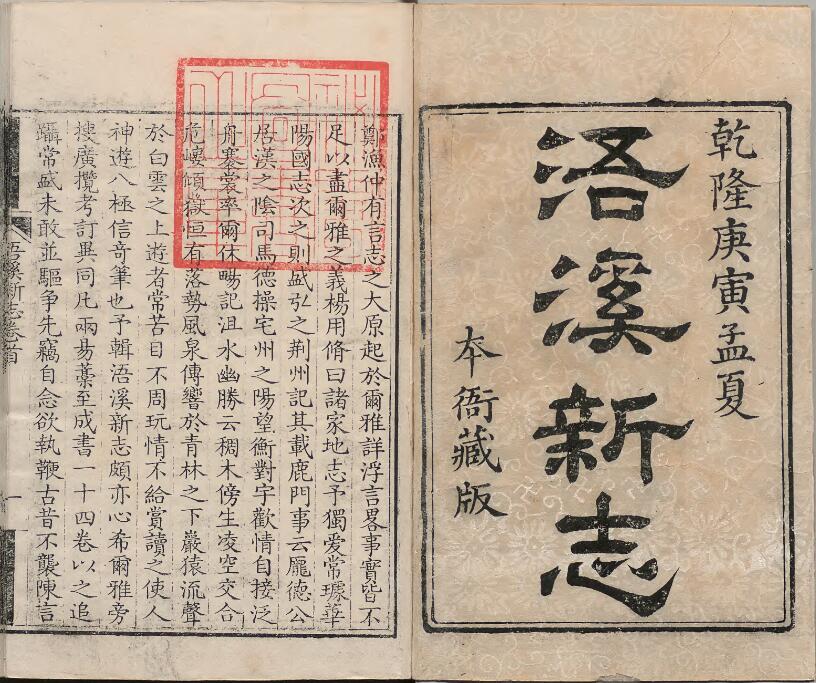 乾隆庚寅孟夏
浯溪新志
本衙藏版
鄭漁仲有言志之大原起於爾雅詳浮言畧事實皆不
足以盡爾雅之義楊用脩曰諸家地志予獨爱常璩華
陽國志次之則盛弘之荆州記其載鹿門事云龎德公
居漢之陰司馬德操宅州之陽望衡對宇歡情自接泛
舟褰裳率爾休暢記沮水幽勝云稠木傍生凌空交合
危嶁傾嶽恒有落勢風泉傳響於青林之下巖猿流聲
於白雲之上遊者常苦目不周玩情不給賞讀之使人
神遊八極信奇筆也予輯浯溪新志頗亦心希爾雅旁
搜廣攬考訂異同凡兩易藁至成書一十四卷以之追
躡常盛未敢並驅争先竊自念欲執鞭古昔不襲陳言
浯溪新志卷首
一